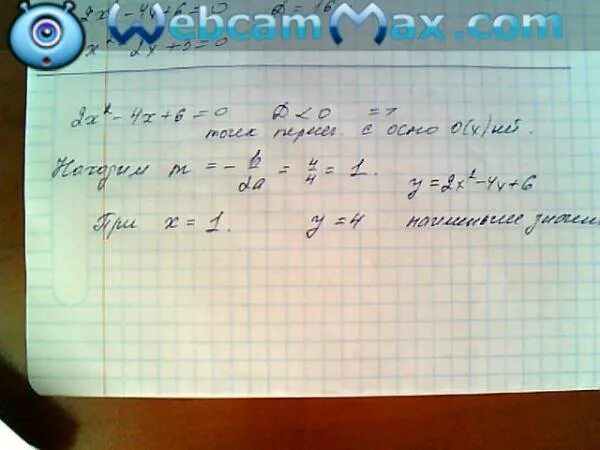 WebcamMax.com
2x² - 4x + 6 = 0 D = 16
x² - 2x + 3 = 0
2x² - 4x + 6 = 0 D < 0 =>
точек перес. с осью О(х) нет.
Находим m = - b/2a = 4/4 = 1.
y = 2x² - 4x + 6
При x = 1. y = 4 наименьшее значен